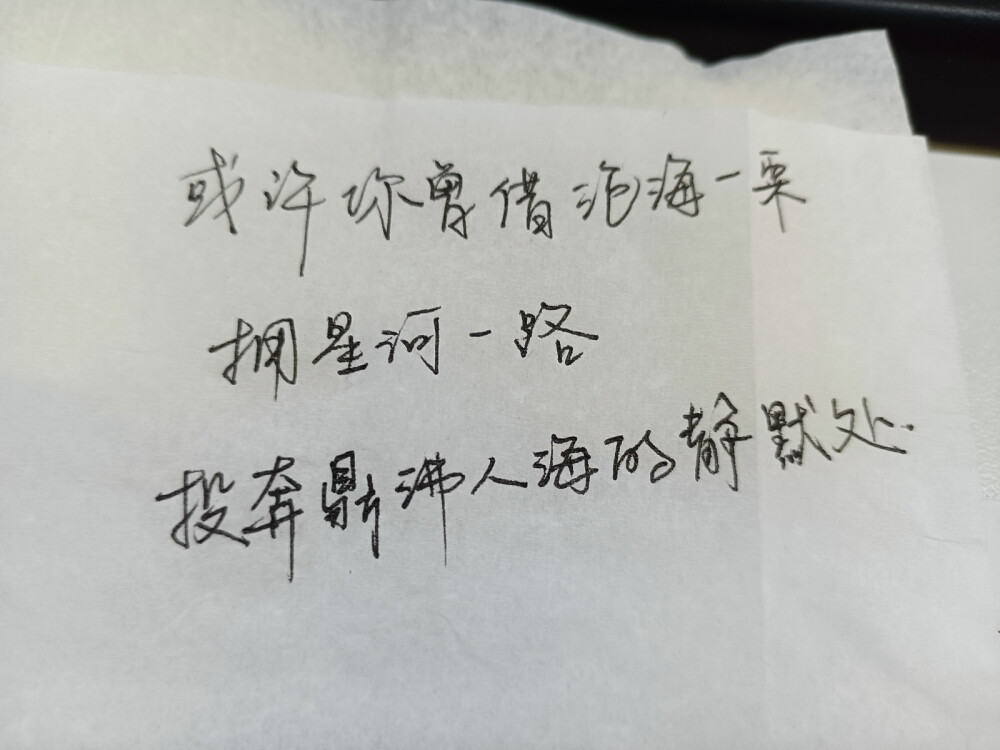 或许你曾借沧海一粟
拥星河一路
投奔鼎沸人海的静默处.